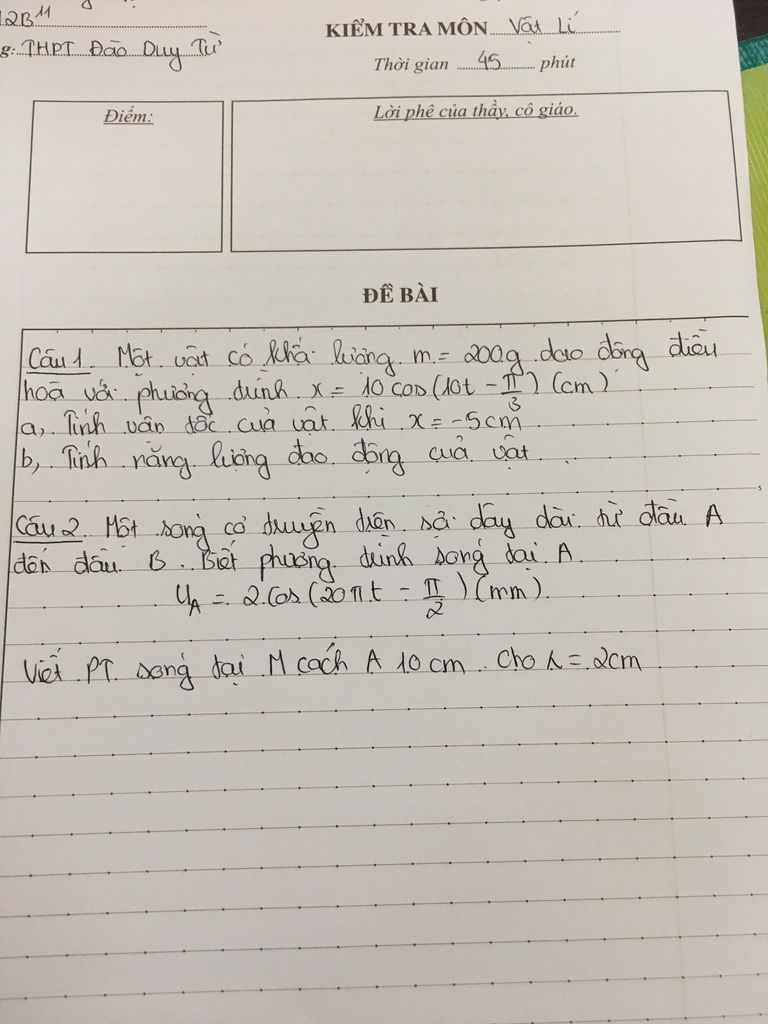 12B11
g: THPT Đào Duy Từ
KIỂM TRA MÔN Vật Lí
Thời gian 45 phút
Điểm:
Lời phê của thầy, cô giáo.
ĐỀ BÀI
Câu 1. Một vật có khối lượng m = 200g dao động điều
hoà với phương trình x = 10 cos(10t - π/3) (cm)
a, Tính vận tốc của vật khi x = -5cm
b, Tính năng lượng dao động của vật.
Câu 2. Một sóng cơ truyền trên sợi dây dài từ đầu A
đến đầu B. Biết phương trình sóng tại A
U_A = 2.cos(20πt - π/2) (mm).
Viết PT sóng tại M cách A 10 cm. Cho λ = 2cm